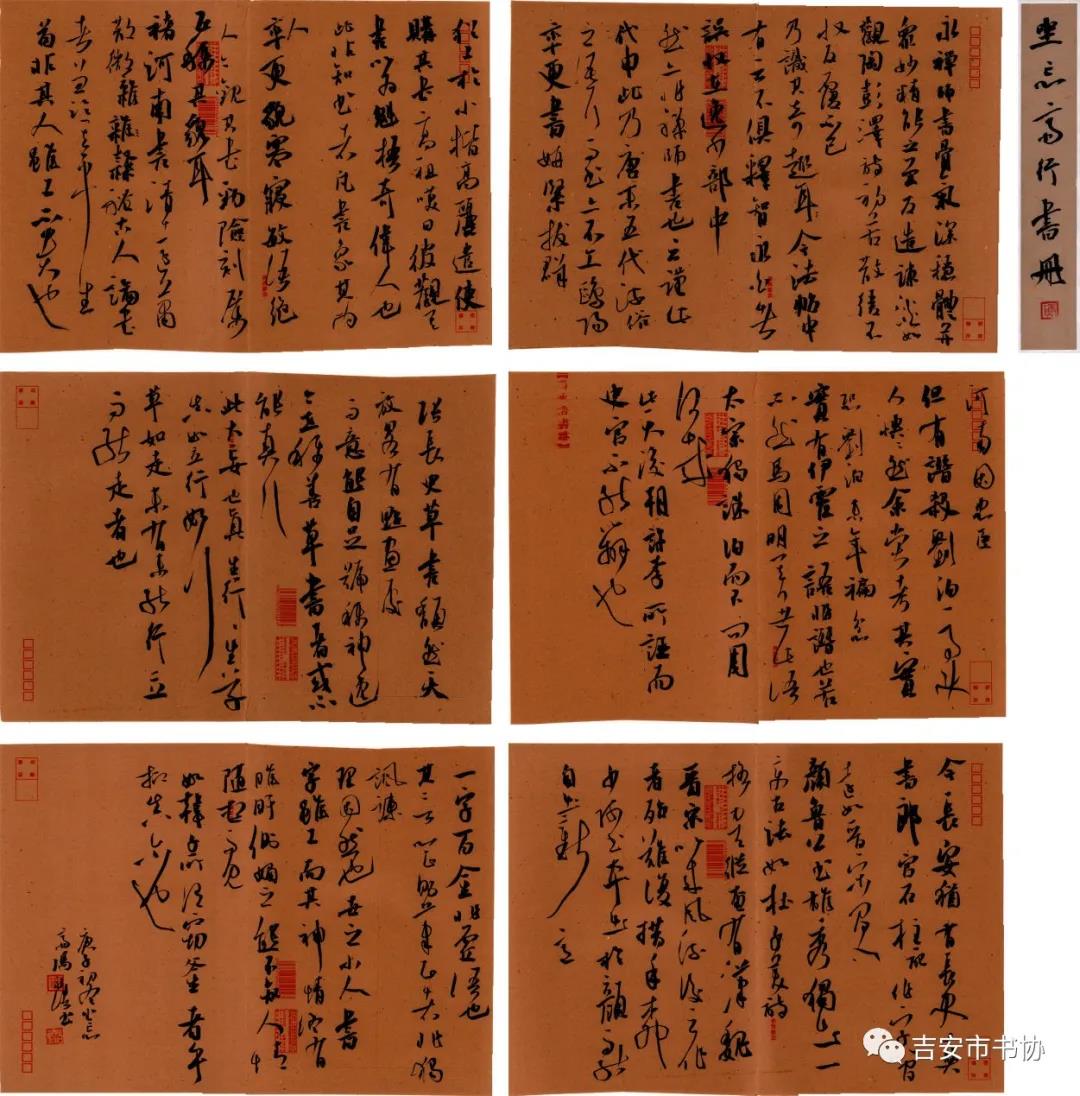 坐忘斋行书册
永禅師書骨氣深穩體并
衆妙精能之至反造疎淡如
觀陶彭澤詩初若散緩不
收反覆不已
乃識其奇趣耳今法帖中
有云不俱釋智永白者
誤收在逸少部中
然亦非禅師書也云謹此
代申此乃唐末五代流俗
之語耳而書亦不工歐陽
率更書妍緊拔群
尤工於小楷高麗遣使
購其書高祖嘆曰彼觀其
書以為魁梧奇偉人也
此非知書者凡書象其為
人
率更貌寒寢敏悟絕
人今觀其書勁險刻厲
正稱其貌耳
褚河南書清遠蕭
散微雜隸體古之人論書
者兼論其平生
苟非其人雖工不貴也
河南固忠臣
但有譖殺劉洎一事使
人怏怏然余嘗考其實
恐劉洎末年褊忿
實有伊霍之語非譖也若
不然馬周明其無此語
太宗獨誅洎而不問周
何哉
此殆天後朝許李所誣而
史官不能辨也
張長史草書頹然天
放略有點畫處
而意態自足號稱神逸
今世稱善草書者或不
能真行
此大妄也真生行行生草
真如立行如行
草如走未有未能行立
而能走者也
今長安猶有長史真
書郎官石柱記作字簡
遠如晉宋間人
顏魯公書雄秀獨出一
變古法如杜子美詩
格力天縱奄有漢魏
晉宋以来風流後之作
者殆難復措手柳
少師書本出於顏而能
自出新意
一字百金非虛語也
其言心正則筆正者非獨
諷諫
理固然也世之小人書
字雖工而其神情終有
睢盱側媚之態不知人情
隨想而見
如韓子所謂竊斧者乎
抑真尔也
吉安市书协